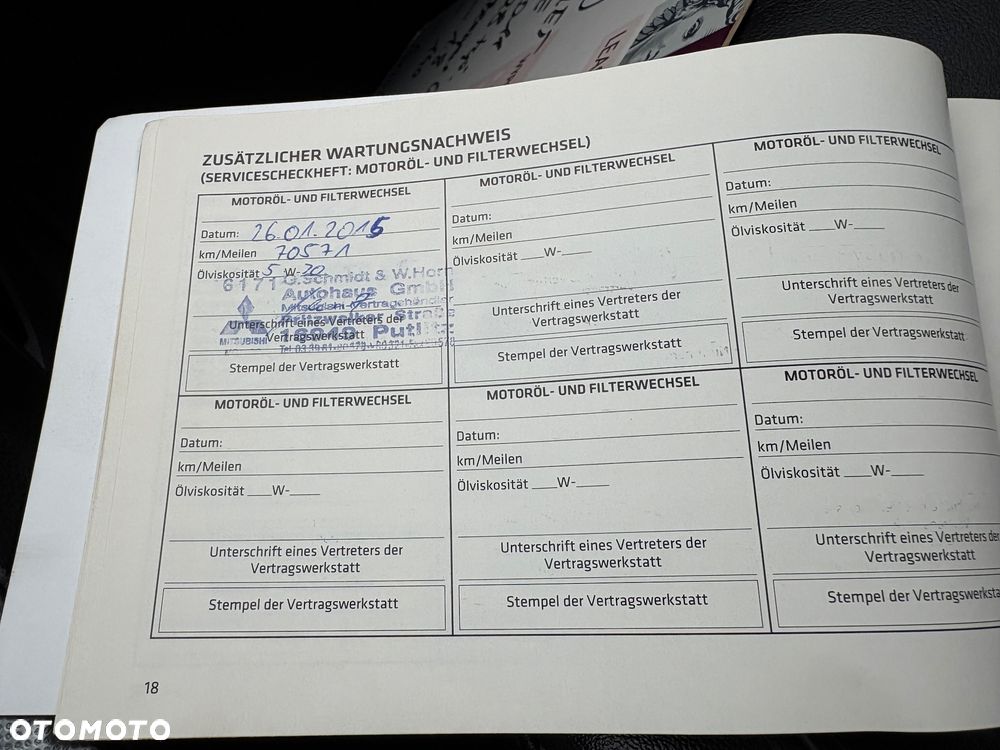 LEA
ZUSÄTZLICHER WARTUNGSNACHWEIS
(SERVICESCHECKHEFT: MOTORÖL- UND FILTERWECHSEL)
MOTORÖL- UND FILTERWECHSEL
Datum: 26.01.2015
km/Meilen 70571
Ölviskosität 5 W-30
6171 G.Schmidt & W.Horn
Autohaus GmbH
Mitsubishi-Vertragshändler
Pritzwalker Straße
16949 Putlitz
MITSUBISHI
Unterschrift eines Vertreters der
Vertragswerkstatt
Stempel der Vertragswerkstatt
MOTORÖL- UND FILTERWECHSEL
Datum:
km/Meilen
Ölviskosität ___W-____
Unterschrift eines Vertreters der
Vertragswerkstatt
Stempel der Vertragswerkstatt
MOTORÖL- UND FILTERWECHSEL
Datum:
km/Meilen
Ölviskosität ___W-____
Unterschrift eines Vertreters der
Vertragswerkstatt
Stempel der Vertragswerkstatt
MOTORÖL- UND FILTERWECHSEL
Datum:
km/Meilen
Ölviskosität ___W-____
Unterschrift eines Vertreters der
Vertragswerkstatt
Stempel der Vertragswerkstatt
MOTORÖL- UND FILTERWECHSEL
Datum:
km/Meilen
Ölviskosität ___W-____
Unterschrift eines Vertreters der
Vertragswerkstatt
Stempel der Vertragswerkstatt
MOTORÖL- UND FILTERWECHSEL
Datum:
km/Meilen
Ölviskosität ___W-____
Unterschrift eines Vertreters der
Vertragswerkstatt
Stempel der Vertragswerksta
18
OTOMOTO